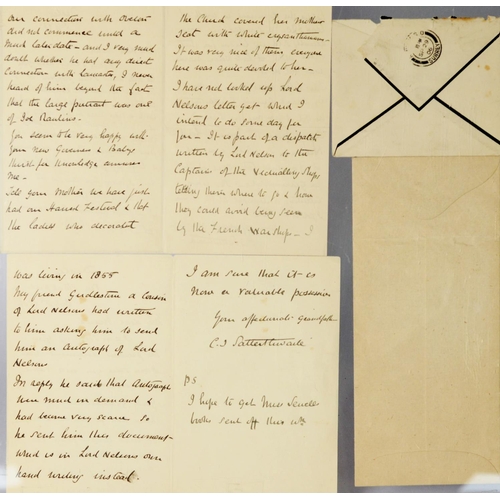 our connection with Overton
did not commence until a
much later date - and I very much
doubt whether he had any direct
connection with Lancaster, I never
heard of him beyond the fact
that the large portrait was one
of Joe Rawlins.
You seem to be very happy with
your new Governess & Babys
thirst for knowledge amuses
me -
Tell your Mother we have just
had our Harvest Festival & that
the ladies who decorated
the Church covered her mother
seat with white crysanthemums -
It was very nice of them everyone
here was quite devoted to her -
I have not looked up Lord
Nelsons letter yet which I
intend to do some day for
you - It is part of a dispatch
written by Lord Nelson to the
Captains of the Victualling ships
telling them where to go & how
they could avoid being seen
by the French warships - I
was living in 1855
My friend Girdlestone a Cousin
of Lord Nelsons had written
to him asking him to send
him an Autograph of Lord
Nelsons
In reply he said that Autographs
were much in demand &
had become very scarce so
he sent him this document -
which is in Lord Nelsons own
hand writing instead.
I am sure that it is
now a valuable possession
Your affectionate Grandfather
C J Satterthwaite
P.S.
I hope to get Miss
books sent off this wk